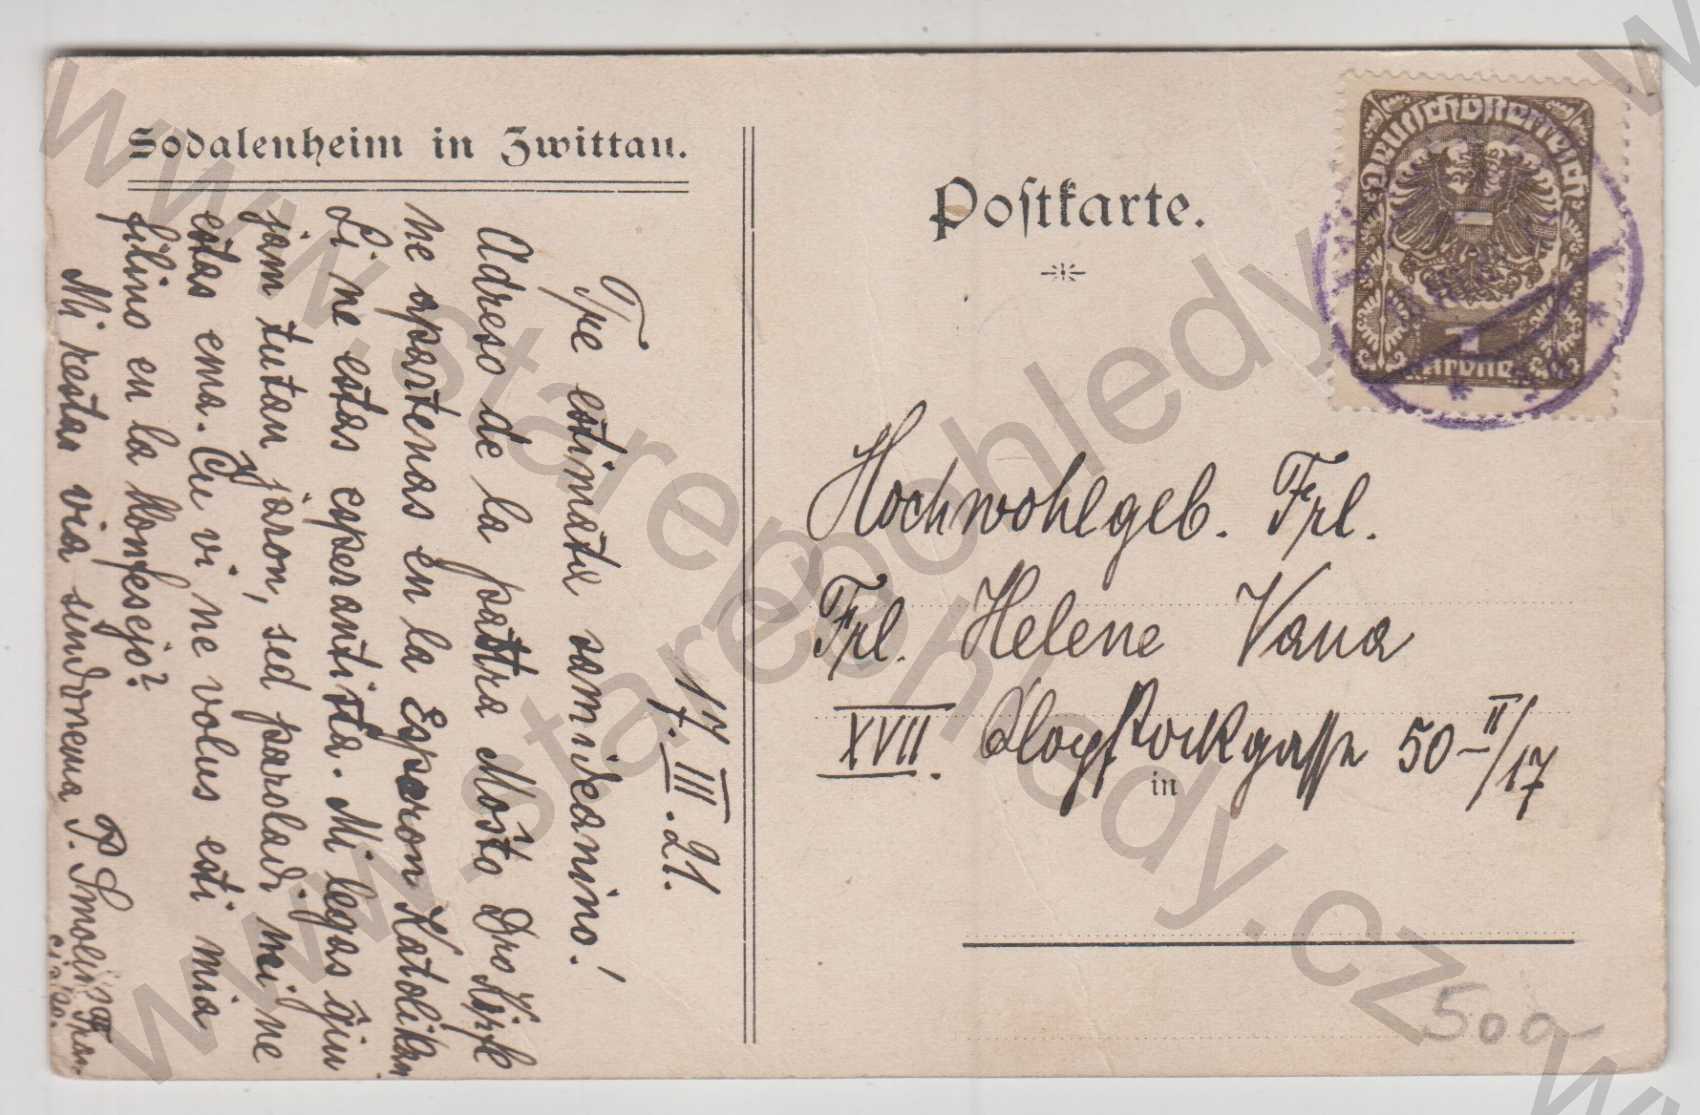 Sodalenheim in Zwittau.
17. III. 21.
Tre estimata samideanino!
Adreso de la patra Moŝta Dro
ne apartenas en la Esperon Katolikan
Li ne estas esperantista. Mi legas ĝin
jam tutan jaron, sed paroladi mi ne
estas ema. Ĉu vi ne volus esti mia
filino en la Konfesejo?
Mi restas via sindonema P.
Postkarte.
Deutschösterreich
1
Krone
Hochwohlgeb. Frl.
Frl. Helene Vana
XVII. Klopstockgasse 50-II/17
in
500
www.starepohledy.cz
www.starepohledy.cz